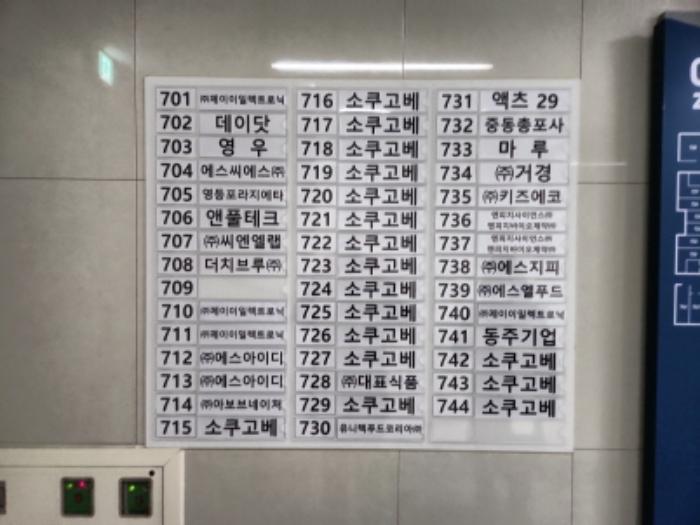 701 ㈜제이이일렉트로닉
702 데이닷
703 영 우
704 에스씨에스㈜
705 영등포라지에타
706 앤풀테크
707 ㈜씨엔엘랩
708 더치브루㈜
709
710 ㈜제이이일렉트로닉
711 ㈜제이이일렉트로닉
712 ㈜에스아이디
713 ㈜에스아이디
714 ㈜어보브네이쳐
715 소쿠고베
716 소쿠고베
717 소쿠고베
718 소쿠고베
719 소쿠고베
720 소쿠고베
721 소쿠고베
722 소쿠고베
723 소쿠고베
724 소쿠고베
725 소쿠고베
726 소쿠고베
727 소쿠고베
728 ㈜대표식품
729 소쿠고베
730 유니텍푸드코리아㈜
731 액츠 29
732 중동총포사
733 마 루
734 ㈜거경
735 ㈜키즈에코
736
737
738 ㈜에스지피
739 ㈜에스엘푸드
740 ㈜제이이일렉트로닉
741 동주기업
742 소쿠고베
743 소쿠고베
744 소쿠고베